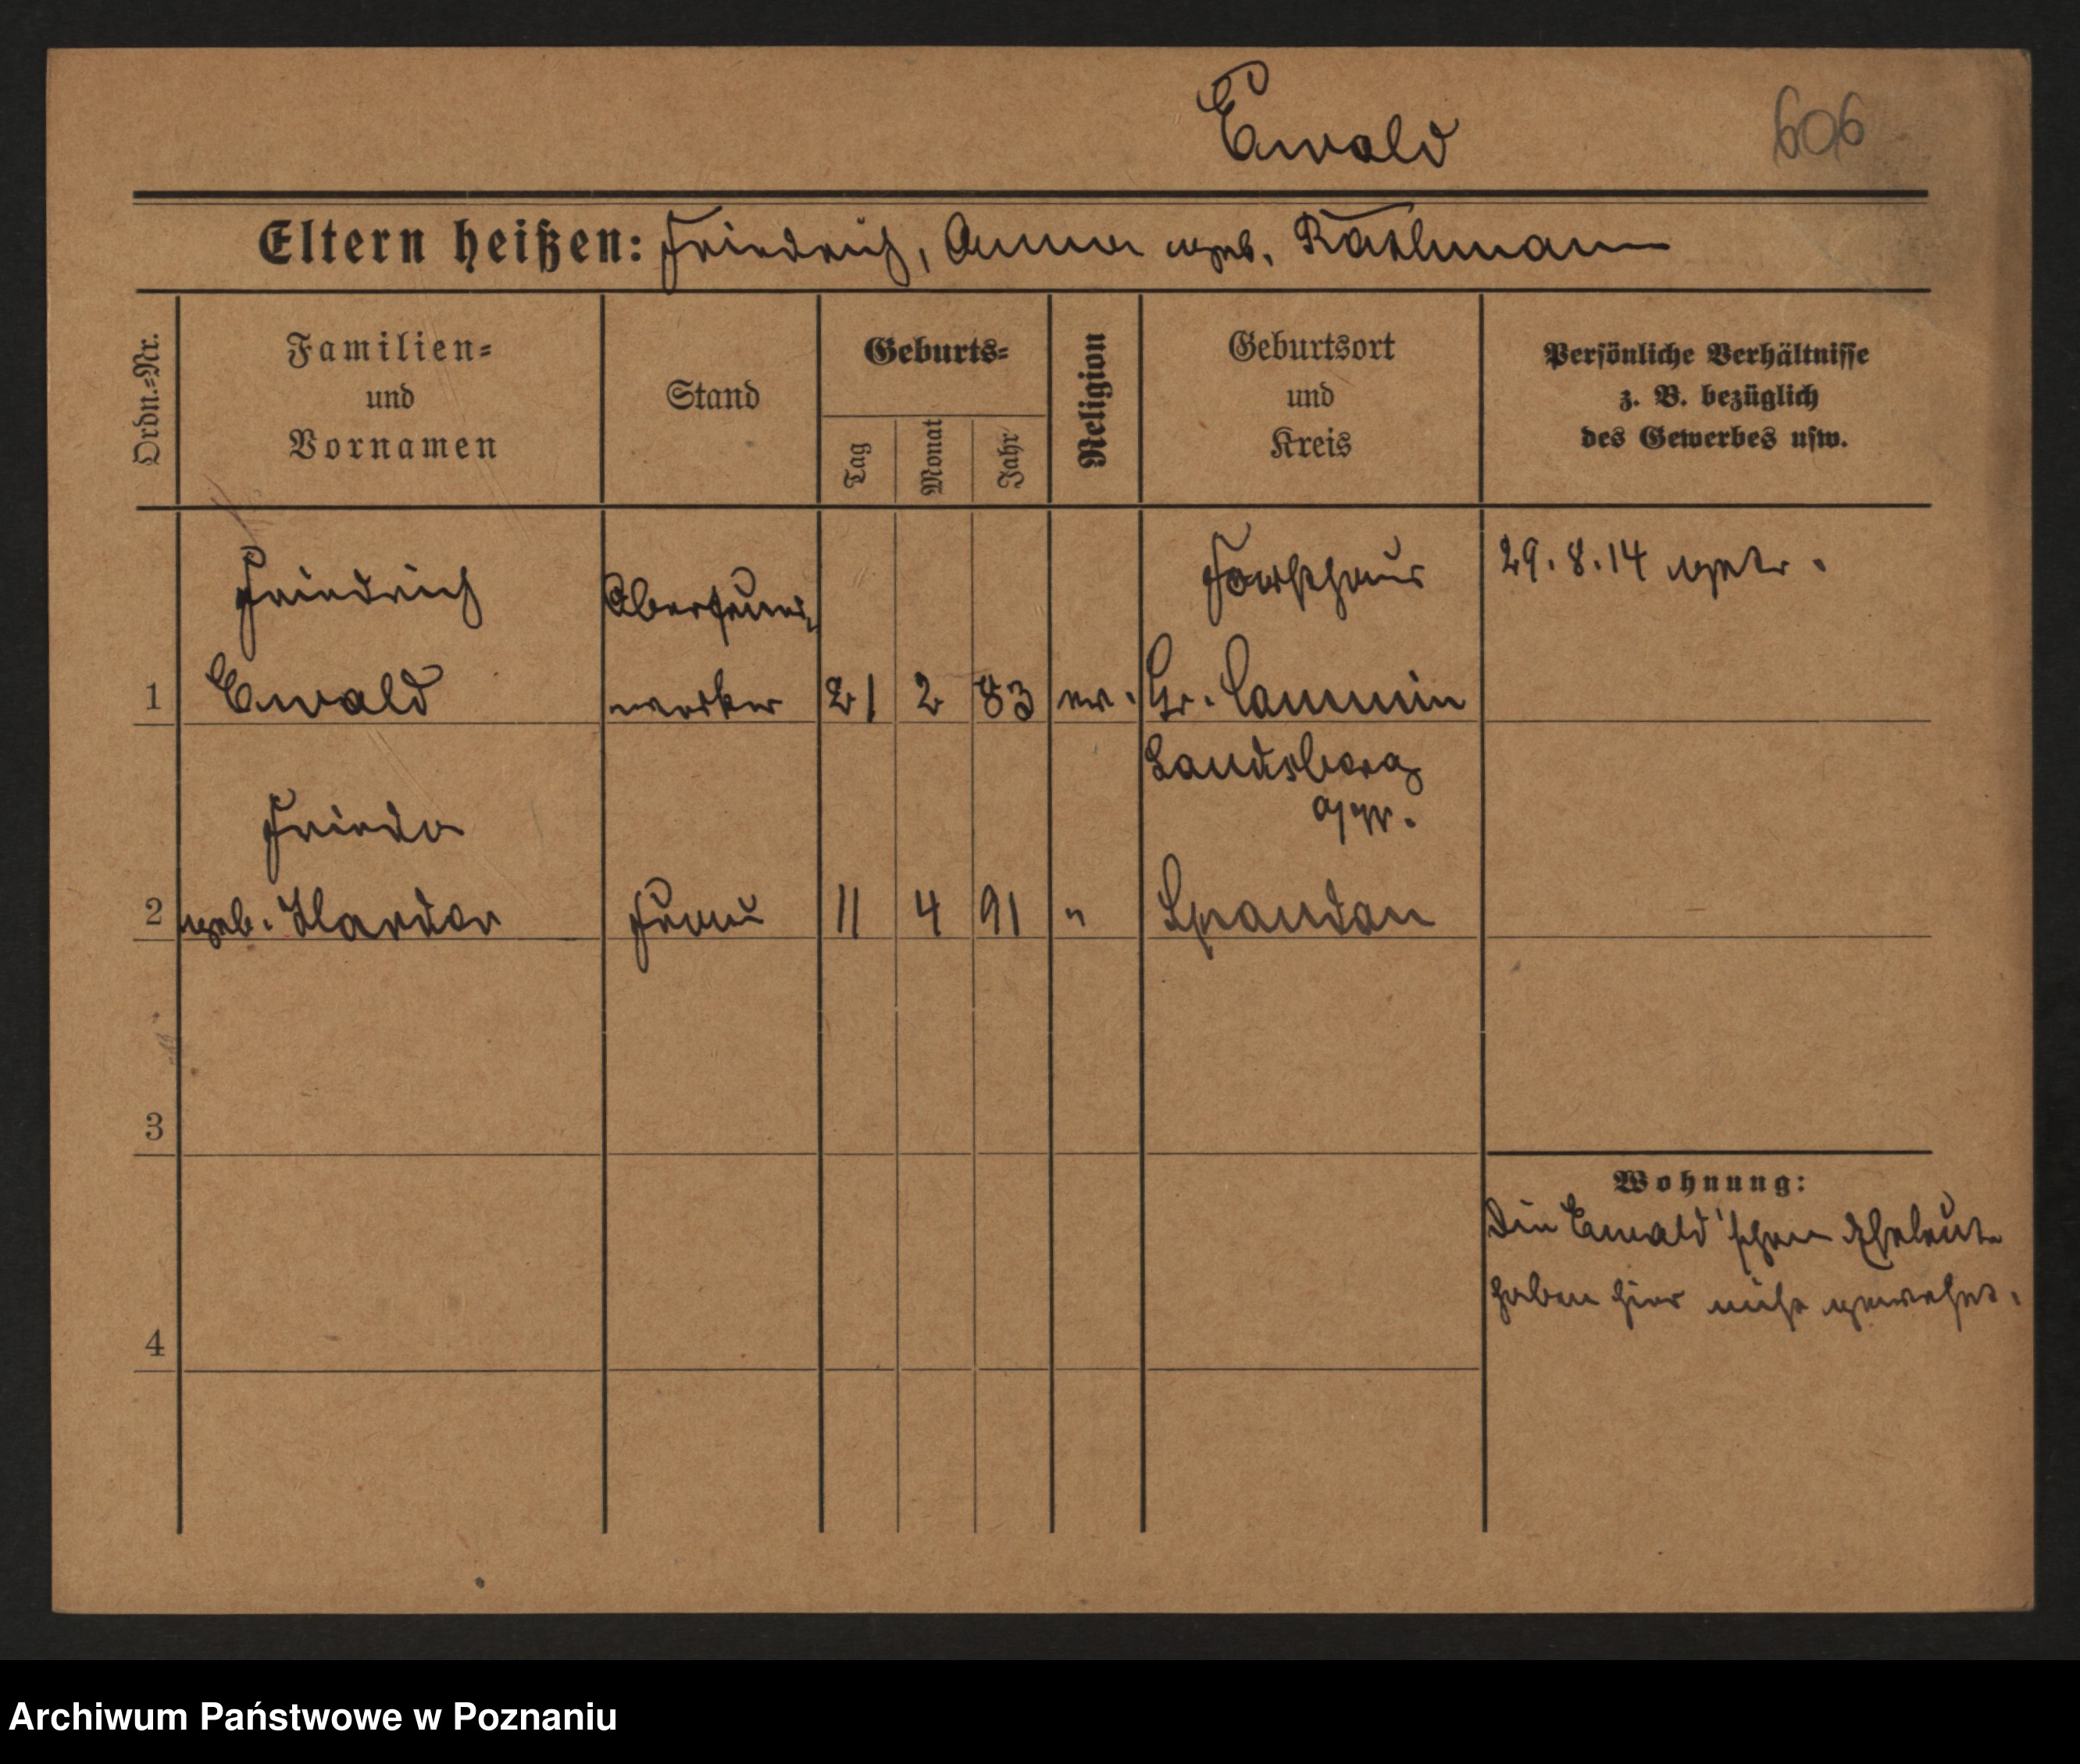 Ewald
606
Eltern heißen: Friedrich, Anna geb. Rathmann
Ordn.-Nr.
Familien-
und
Vornamen
Stand
Geburts-
Tag
Monat
Jahr
Religion
Geburtsort
und
Kreis
Persönliche Verhältnisse
z. B. bezüglich
des Gewerbes usw.
Friedrich Oberfeuer- Forsthaus 29.8.14 getr.
1 Ewald werker 21 2 83 ev. Gr. Cammin
Landsberg
a/W.
Frieda
2 geb. Harder Frau 11 4 91 " Spandau
3
Wohnung:
Die Ewald'schen Eheleute
haben hier nicht gewohnt.
4
Archiwum Państwowe w Poznaniu